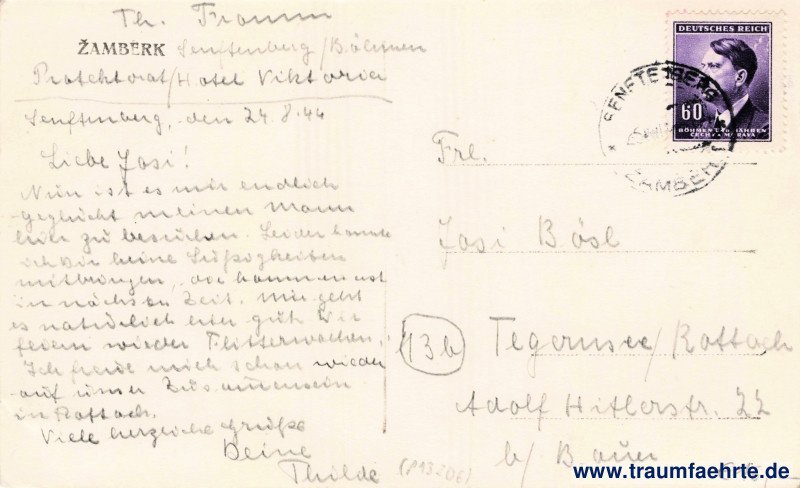 Th. Fromm
ŽAMBERK Senftenberg/Böhmen
Protektorat/Hotel Viktoria
Senftenberg, den 24.8.44
Liebe Josi!
Nun ist es mir endlich
geglückt meinen Mann
hier zu besuchen. Leider konnte
ich Dir keine Süßigkeiten
mitbringen, die kommen erst
in nächster Zeit. Mir geht
es natürlich hier gut. Wir
feiern wieder Flitterwochen.
Ich freue mich schon wieder
auf unser Zusammensein
in Rottach.
Viele herzliche Grüße
Deine
Thilde
DEUTSCHES REICH
60
BÖHMEN UND MÄHREN
ČECHY A MORAVA
SENFTENBERG
ŽAMBERK
Frl.
Josi Bösl
13b
Tegernsee/Rottach
Adolf Hitlerstr. 22
b/ Bauer
www.traumfaehrte.de